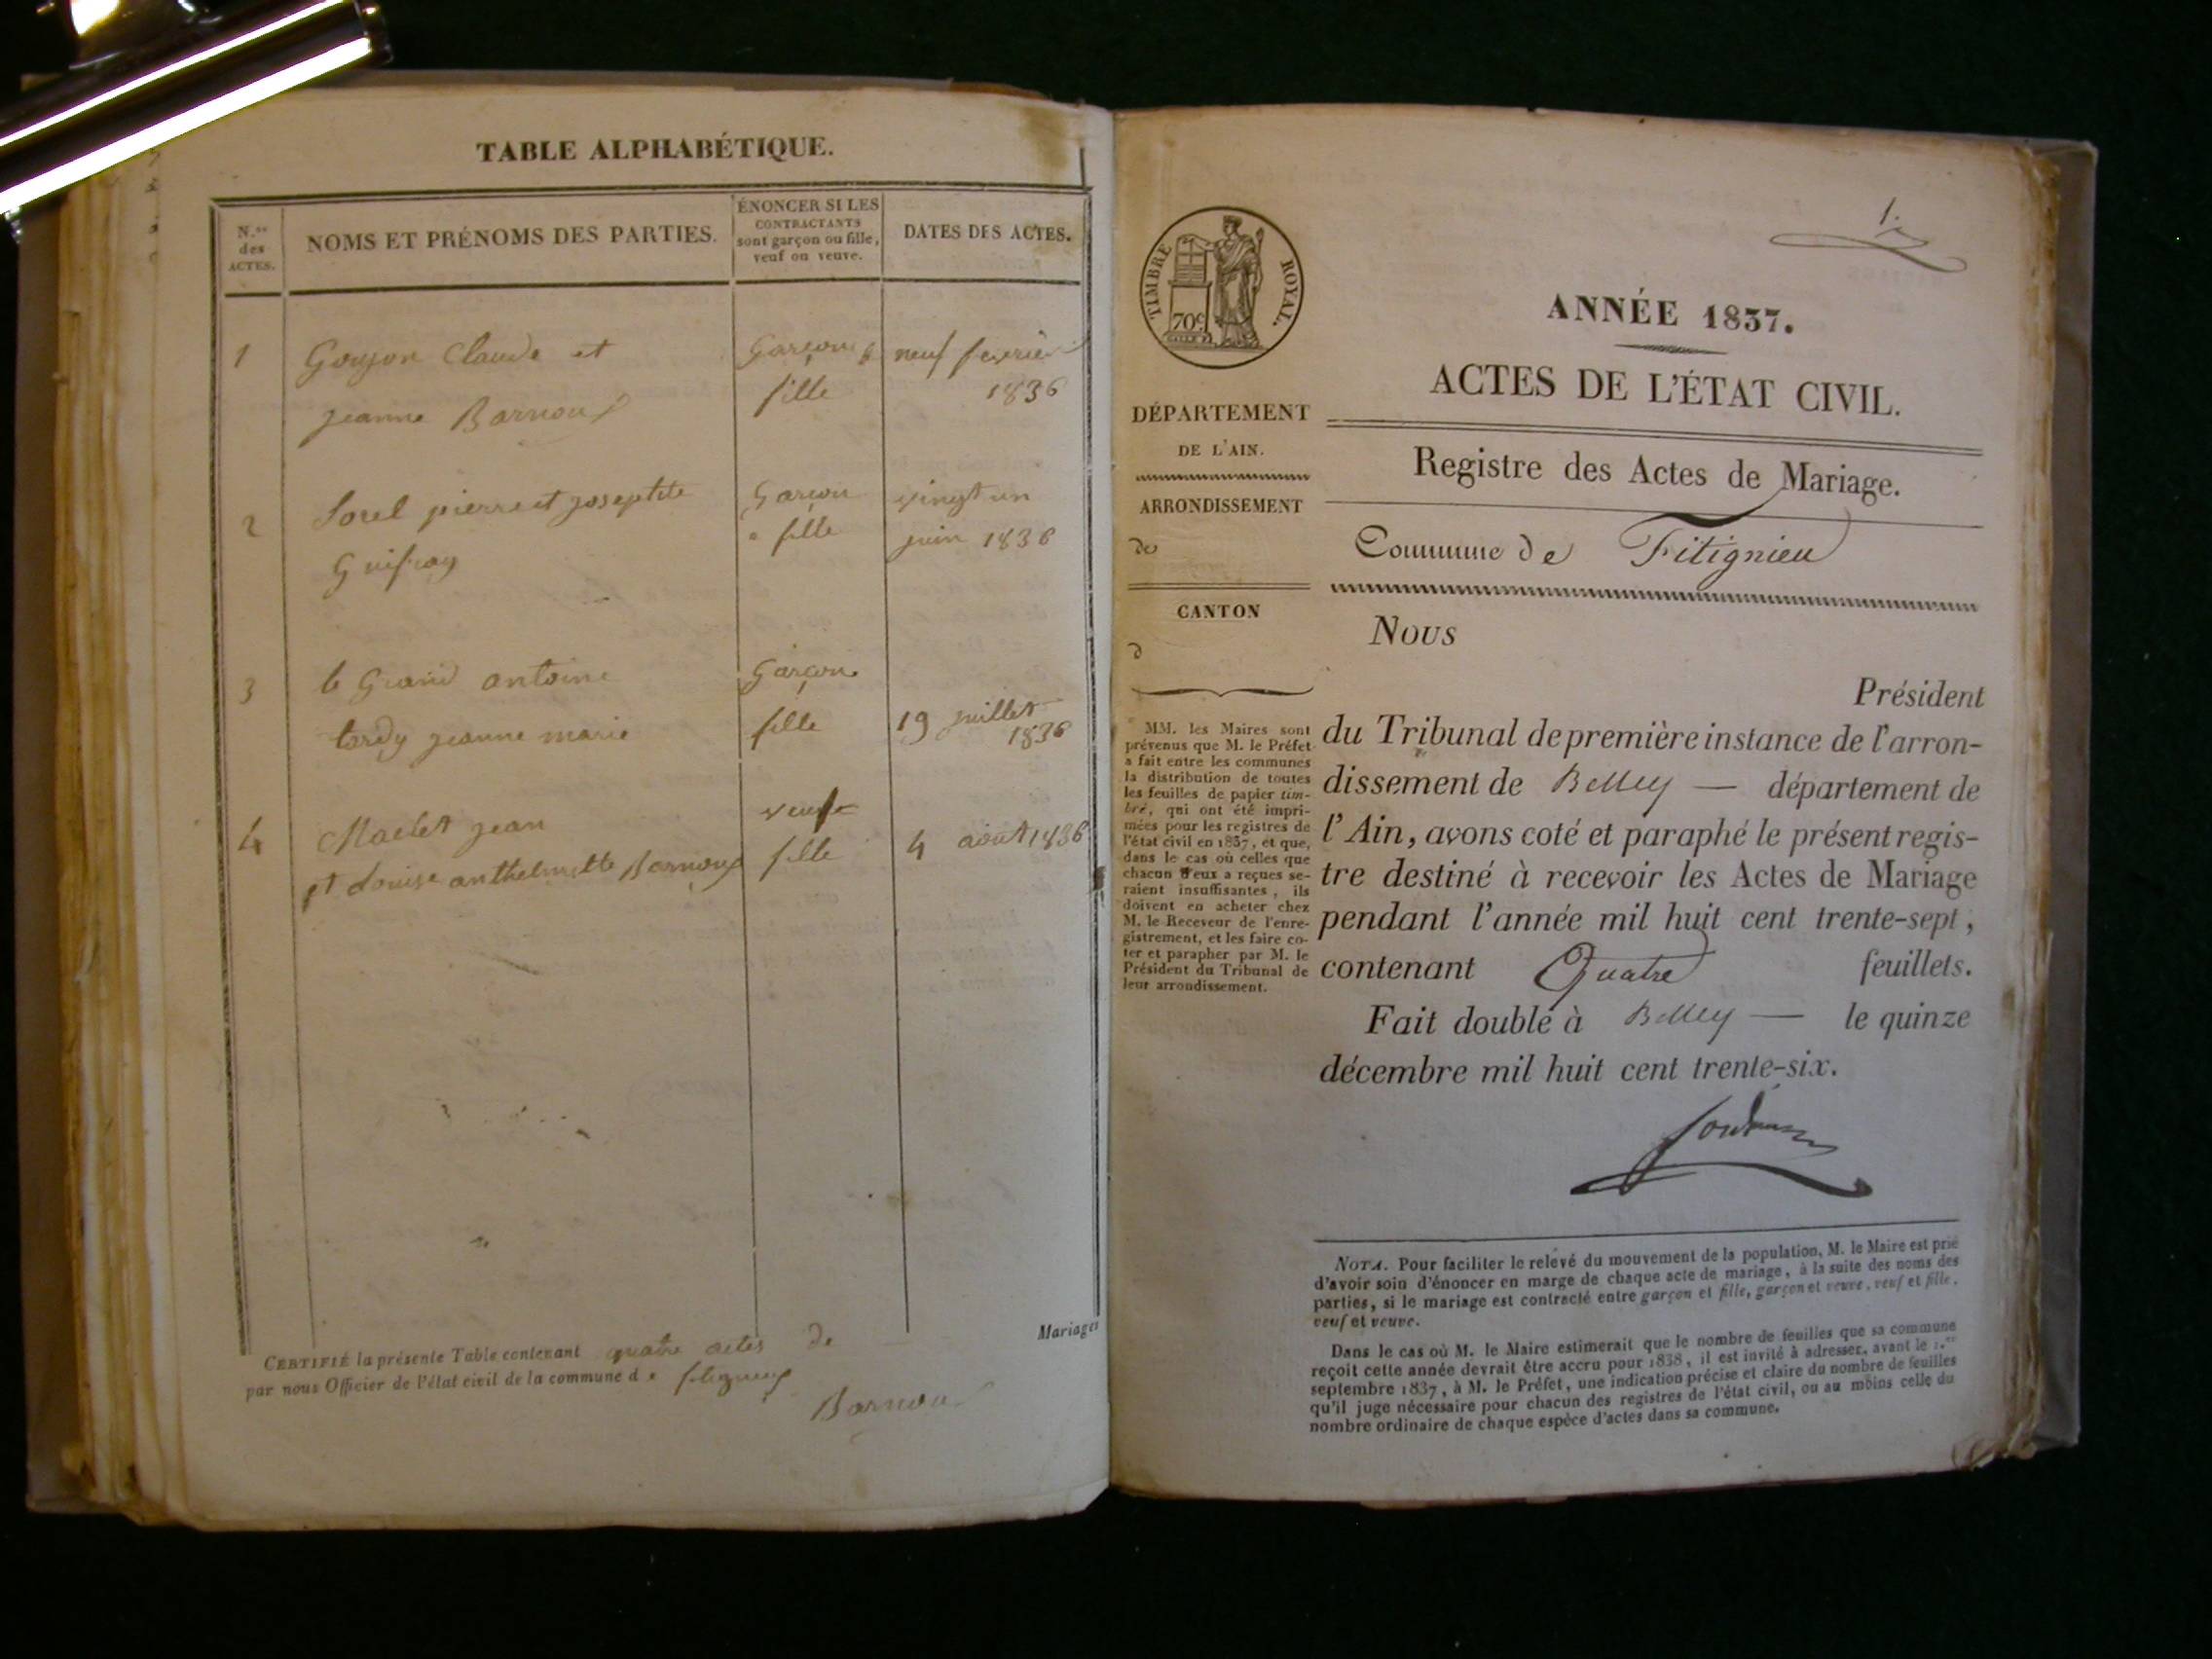 TABLE ALPHABÉTIQUE.
N.os des ACTES.
NOMS ET PRÉNOMS DES PARTIES.
ÉNONCER SI LES
CONTRACTANTS
sont garçon ou fille,
veuf ou veuve.
DATES DES ACTES.
1 Goujon Claude et garçon neuf fevrier
jeanne Barnoux fille 1836
2 Sorel pierre et josephte garçon vingt un
fille juin 1836
3 le Grand antoine garçon
tardy jeanne marie fille 19 juillet
1836
4 jean veuf
et Louise anthelmette Barnoux fille 4 août 1836
Mariages
CERTIFIÉ la présente Table contenant quatre actes de
par nous Officier de l'état civil de la commune de
Barnoux
1.
TIMBRE ROYAL.
70c
ANNÉE 1837.
ACTES DE L'ÉTAT CIVIL.
Registre des Actes de Mariage.
Commune de Fitignieu
DÉPARTEMENT
DE L'AIN.
ARRONDISSEMENT
de
CANTON
d
MM. les Maires sont
prévenus que M. le Préfet
a fait entre les communes
la distribution de toutes
les feuilles de papier tim-
bré, qui ont été impri-
mées pour les registres de
l'état civil en 1837, et que,
dans le cas où celles que
chacun d'eux a reçues se-
raient insuffisantes, ils
doivent en acheter chez
M. le Receveur de l'enre-
gistrement, et les faire co-
ter et parapher par M. le
Président du Tribunal de
leur arrondissement.
Nous
Président
du Tribunal de première instance de l'arron-
dissement de Belley — département de
l'Ain, avons coté et paraphé le présent regis-
tre destiné à recevoir les Actes de Mariage
pendant l'année mil huit cent trente-sept,
contenant Quatre feuillets.
Fait double à Belley — le quinze
décembre mil huit cent trente-six.
NOTA. Pour faciliter le relevé du mouvement de la population, M. le Maire est prié
d'avoir soin d'énoncer en marge de chaque acte de mariage, à la suite des noms des
parties, si le mariage est contracté entre garçon et fille, garçon et veuve, veuf et fille,
veuf et veuve.
Dans le cas où M. le Maire estimerait que le nombre de feuilles que sa commune
reçoit cette année devrait être accru pour 1838, il est invité à adresser, avant le 1.er
septembre 1837, à M. le Préfet, une indication précise et claire du nombre de feuilles
qu'il juge nécessaire pour chacun des registres de l'état civil, ou au moins celle du
nombre ordinaire de chaque espèce d'actes dans sa commune.